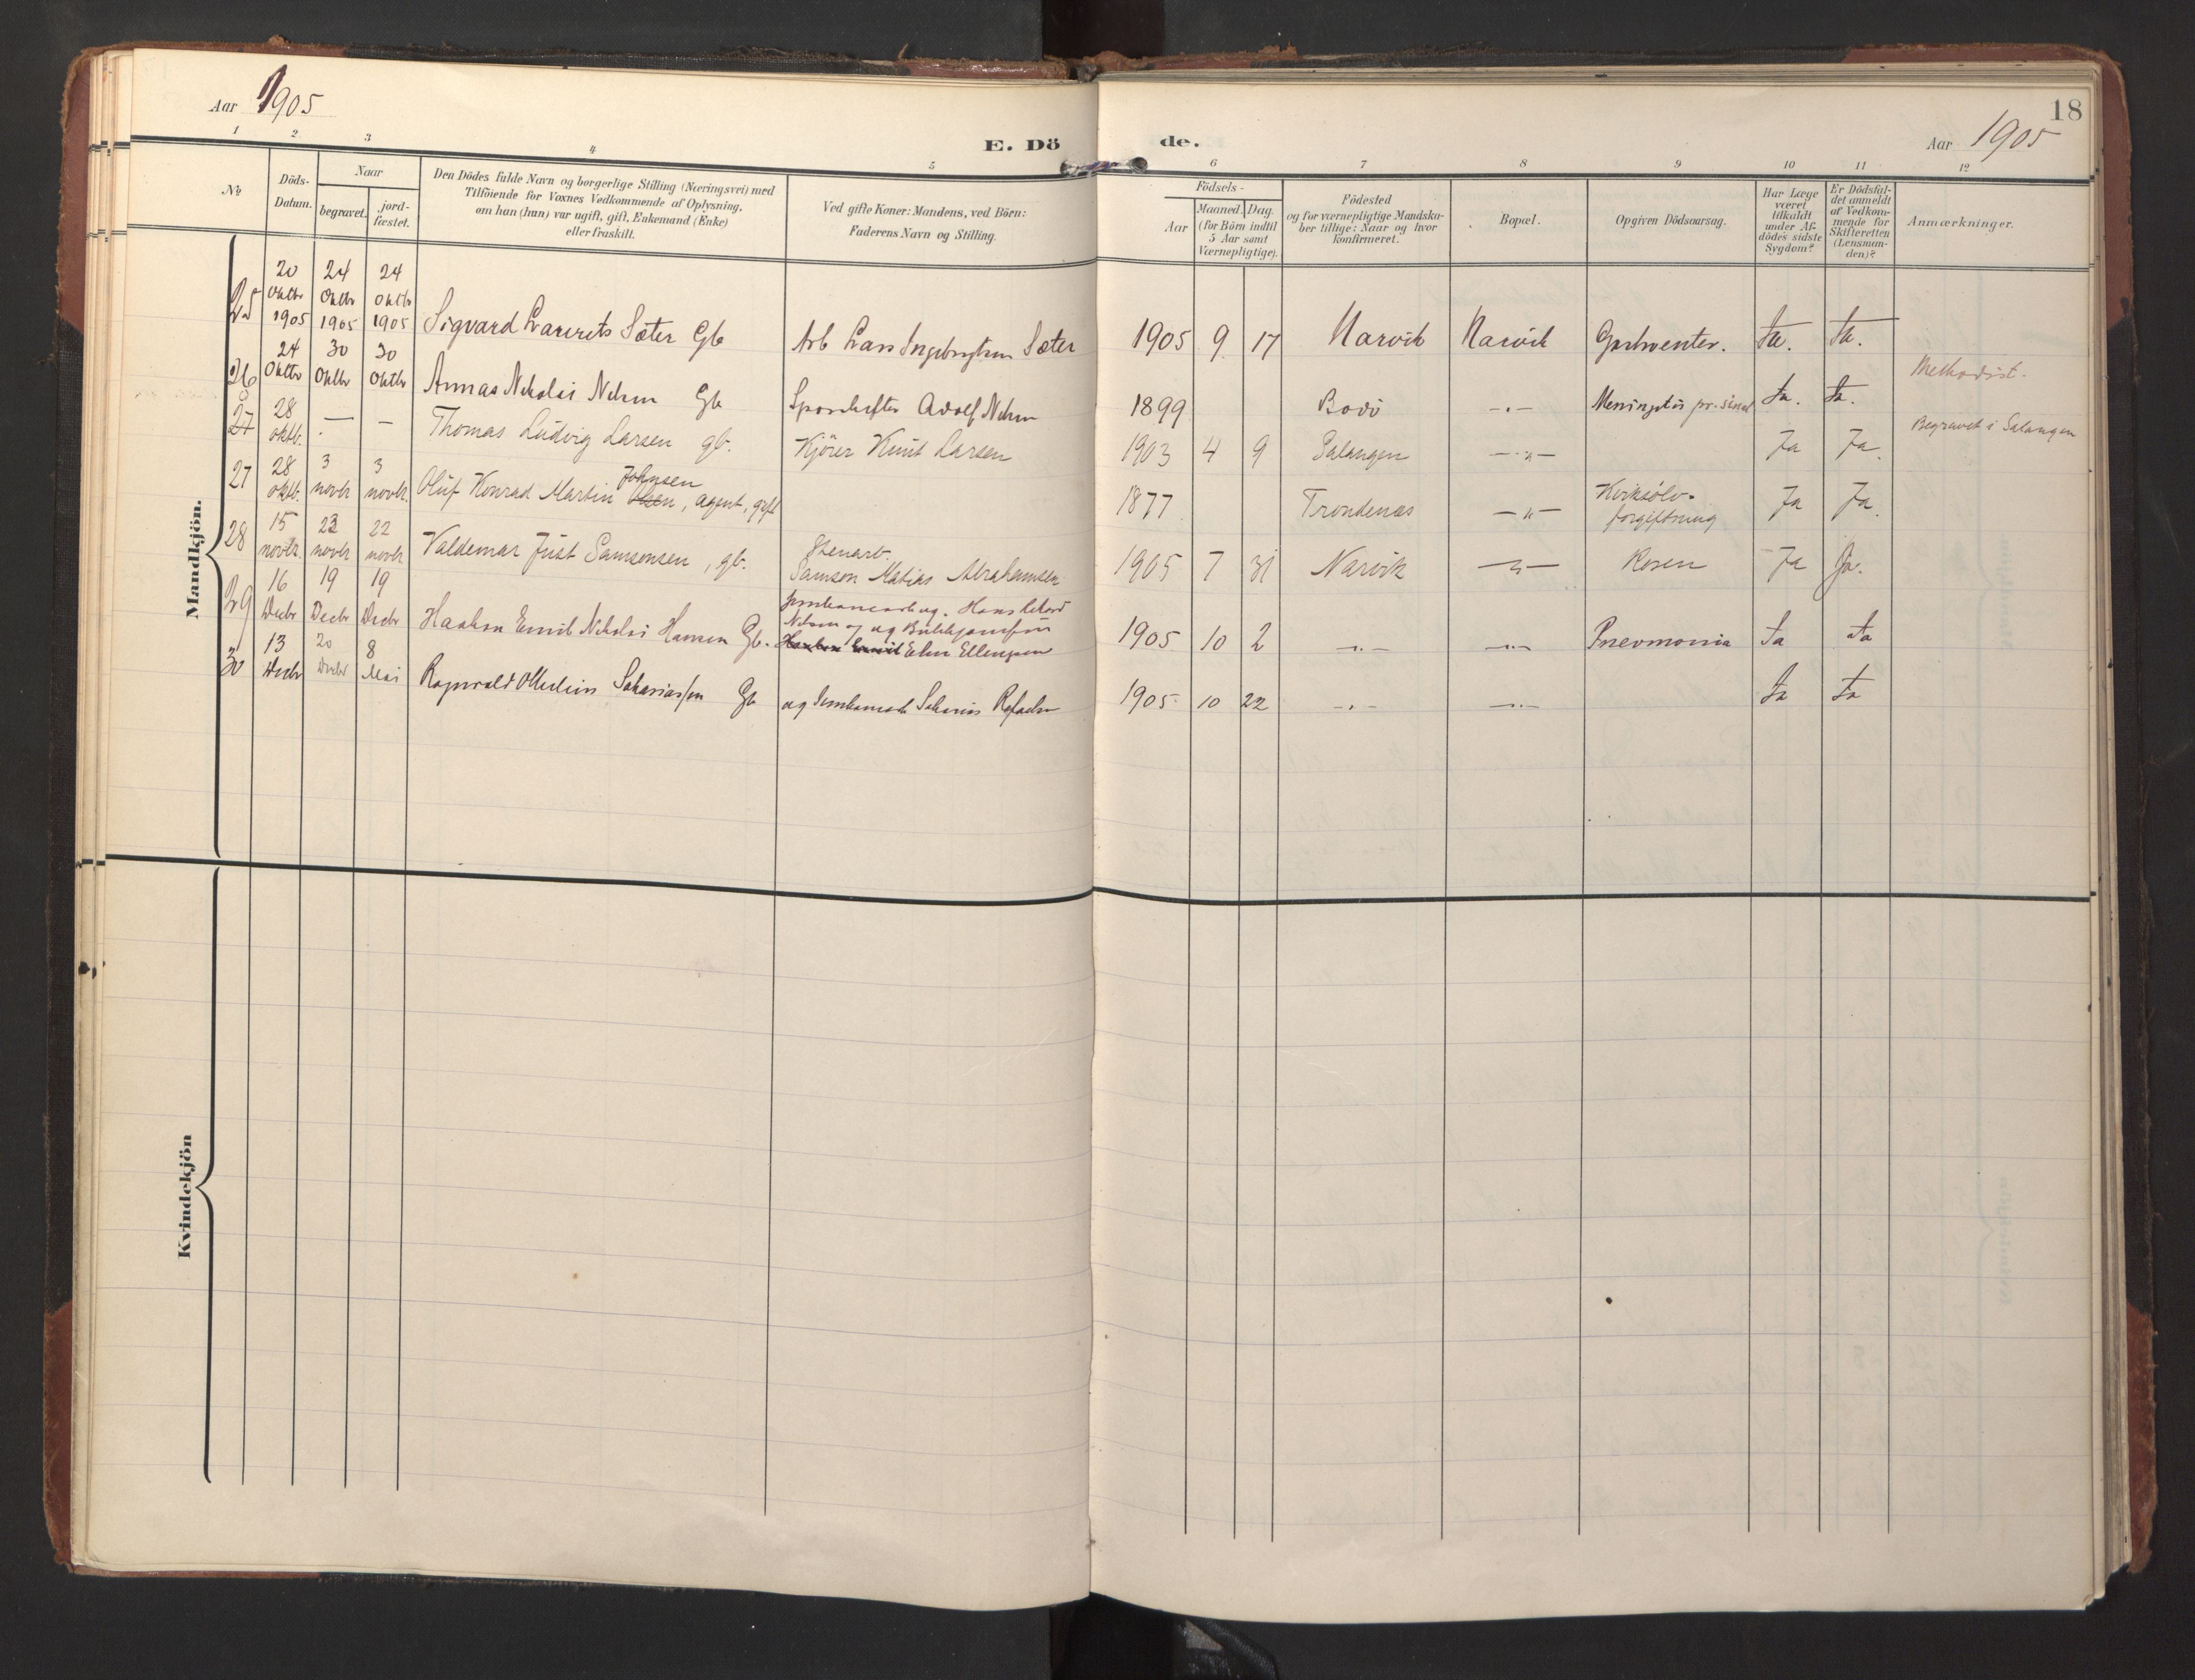 Aar 1905
18
Aar 1905
E. Dö de.
1 2 3 4 5 6 7 8 9 10 11 12
No
Döds-
Datum.
Naar
begravet.
jord-
fæstet.
Den Dödes fulde Navn og borgerlige Stilling (Næringsvei) med
Tilföiende for Voxnes Vedkommende af Oplysning,
om han (hun) var ugift, gift, Enkemand (Enke)
eller fraskilt.
Ved gifte Koner: Mandens, ved Börn:
Faderens Navn og Stilling.
Födsels-
Aar
Maaned. Dag.
(for Börn indtil
5 Aar samt
Værnepligtige).
Födested
og for værnepligtige Mandska-
ber tillige: Naar og hvor
konfirmeret.
Bopæl.
Opgiven Dödsaarsag.
Har Læge
været
tilkaldt
under Af-
dödes sidste
Sygdom?
Er Dödsfal-
det anmeldt
af Vedkom-
mende for
Skifteretten
(Lensman-
den)?
Anmærkninger.
Mandkjön.
25 20 Oktbr 1905 24 Oktbr 1905 24 Oktbr 1905 Sigvard Sæter Gb Arb Lars Sæter 1905 9 17 Narvik Narvik Ja. Ja.
26 24 Oktbr 30 Oktbr 30 Oktbr Nikolai Nilsen Gb Adolf Nilsen 1899 Bodö -"- Ja. Ja. Methodist.
27 28 oktb. — — Thomas Ludvig Larsen gb. Kjörer Knut Larsen 1903 4 9 Salangen -"- Ja Ja. Begravet i Salangen
27 28 oktb. 3 novbr 3 novbr. Oluf Konrad Martin Olsen Johnsen, agent, gift 1877 Trondenæs -"- Kviksölv-
forgiftning Ja Ja.
28 15 novbr. 23 novbr 22 novbr Valdemar Just Samsonsen, gb. Stenarb.
Samson Matias Abrahamsen 1905 7 31 Narvik -"- Rosen Ja Ja.
29 16 Decbr 19 Decbr 19 Decbr Haakon Emil Nikolai Hansen Gb. Hans
Nilsen og
Haakon Emil Ellingsen 1905 10 2 -"- -"- Pneomonia Ja Ja
30 13 Decbr 20 Decbr 8 Mai Ragnvald Sakariassen Gb ug Sakarias 1905 10 22 -"- -"- Ja Ja
Kvindekjön